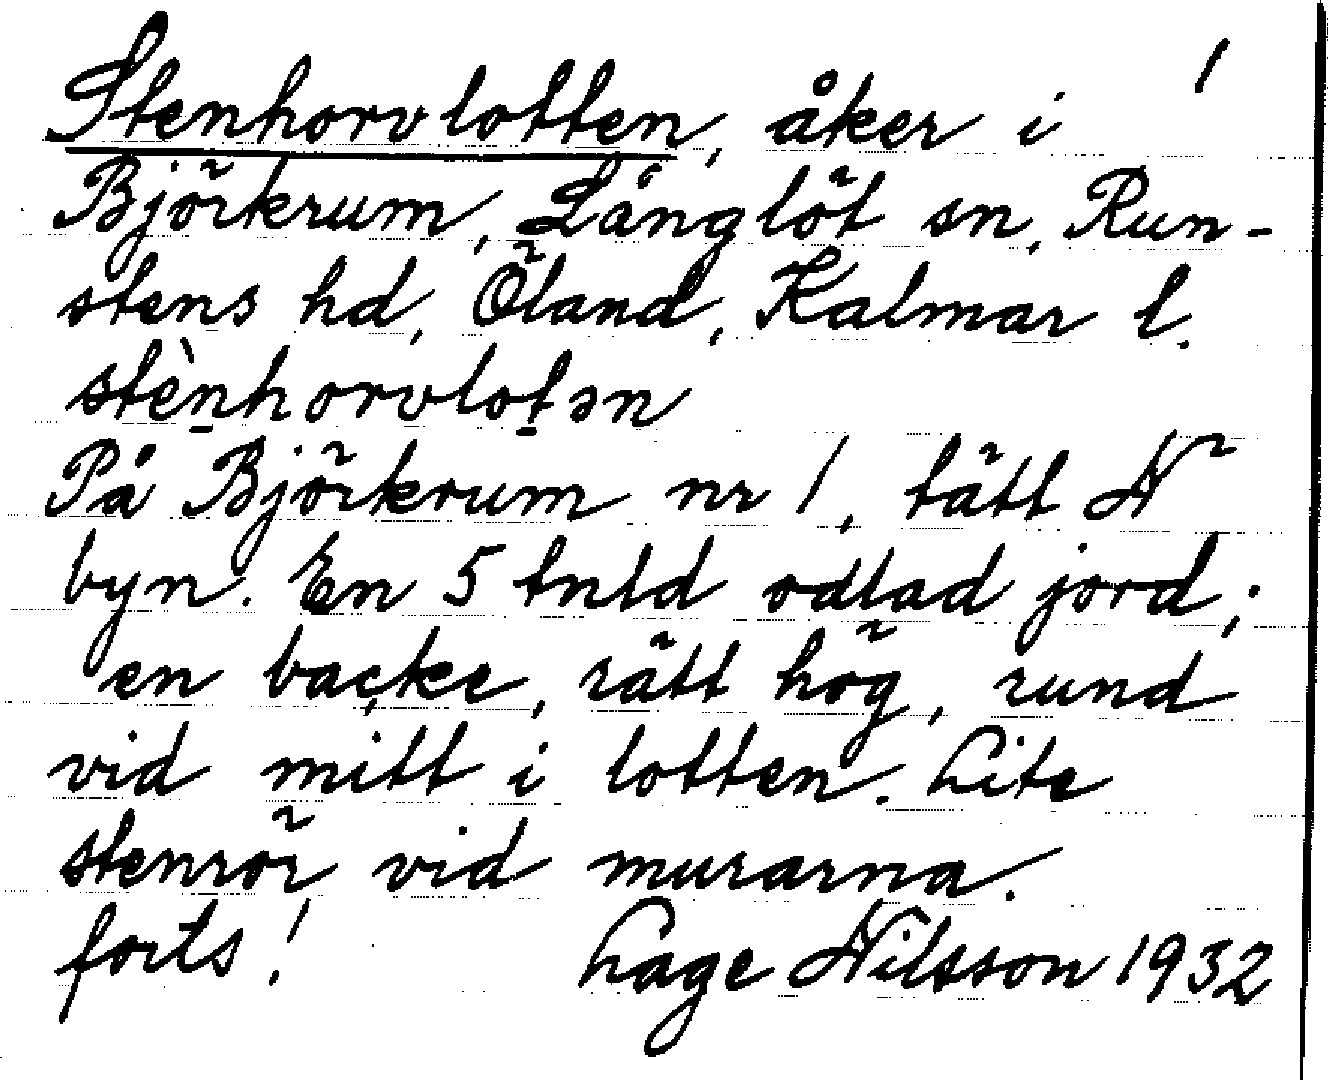 Stenhorvlotten, åker i 1
Björkrum, Långlöt sn, Run-
stens hd, Öland, Kalmar l.
stèn̠horvlot̠ən
På Björkrum nr 1, tätt N
byn. En 5 tnld odlad jord;
en backe, rätt hög, rund
vid mitt i lotten. Lite
stenrör vid murarna.
forts! Lage Nilsson 1932